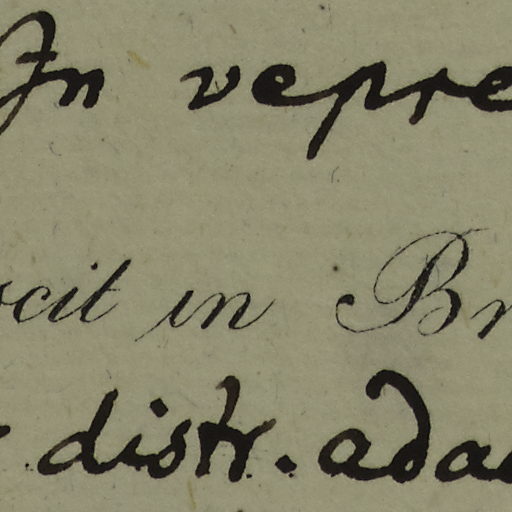 In vepre
cit in Br
distr. ada